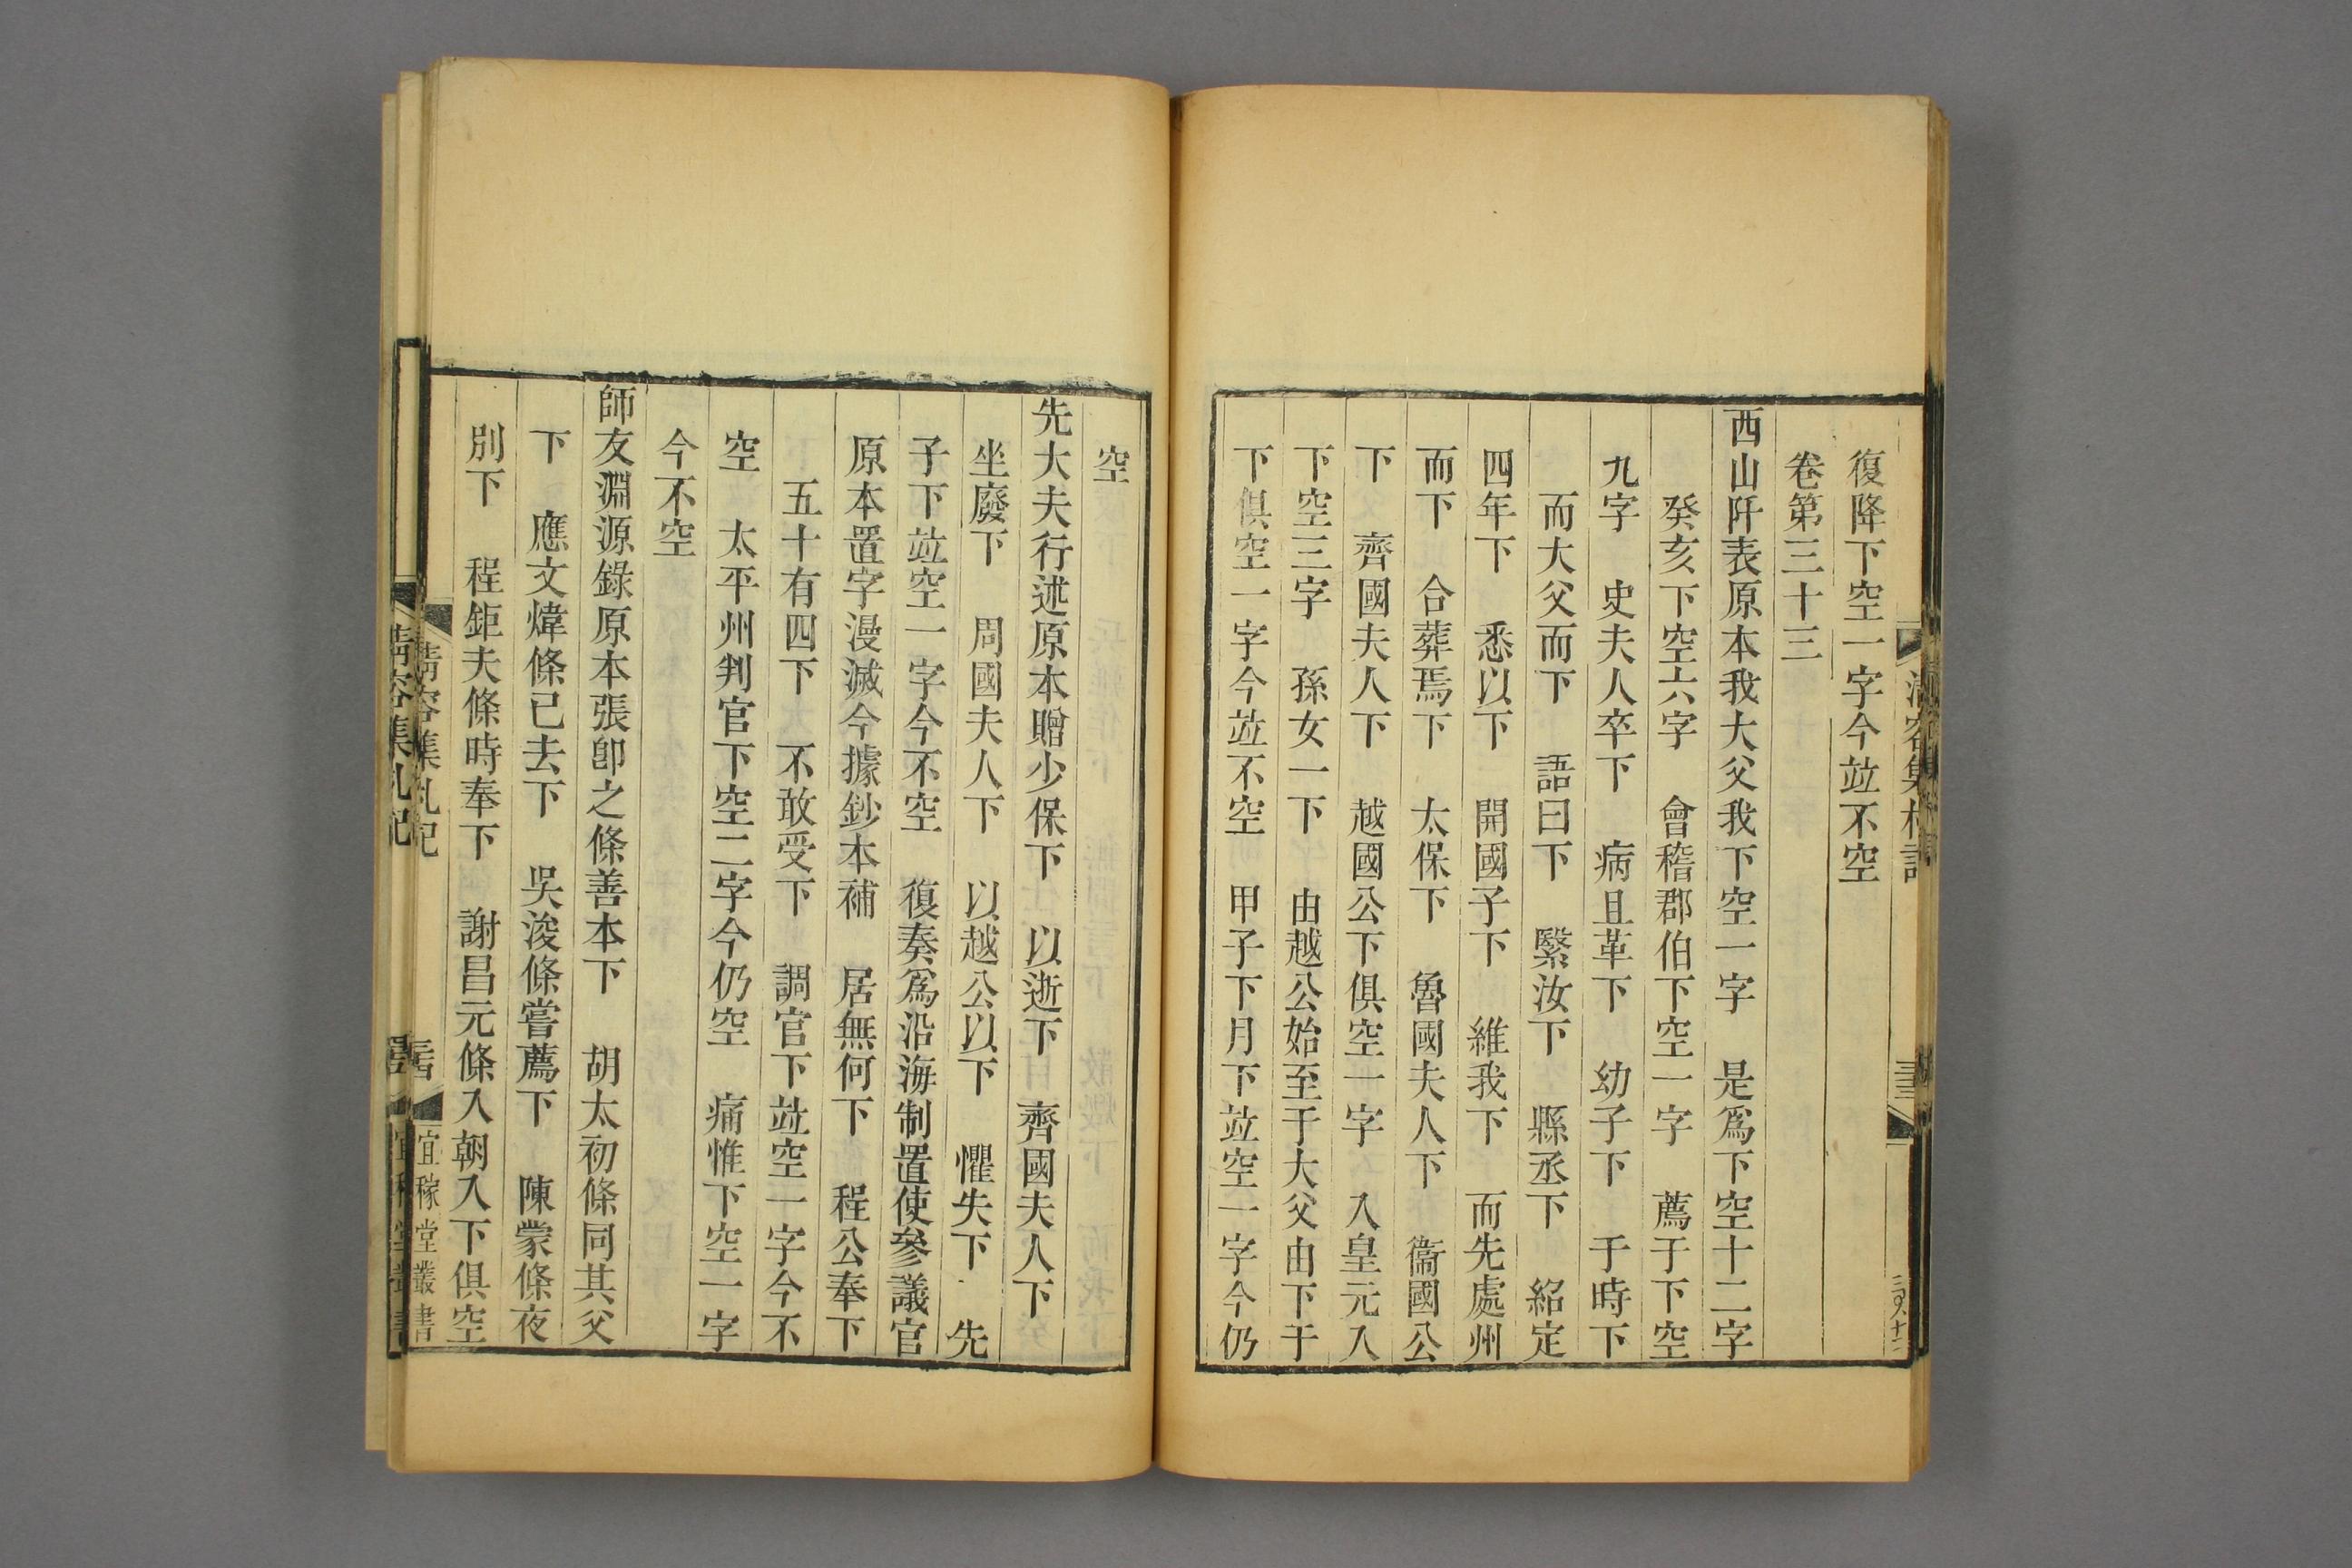 復降下空一字今竝不空
卷第三十三
西山阡表原本我大父我下空一字　是爲下空十二字
癸亥下空六字　會稽郡伯下空一字　薦于下空
九字　史夫人卒下　病且革下　幼子下　于時下
而大父而下　語曰下　緊汝下　縣丞下　紹定
四年下　悉以下　開國子下　維我下　而先處州
而下　合葬焉下　太保下　魯國夫人下　衞國公
下　齊國夫人下　越國公下俱空一字　入皇元入
下空三字　孫女一下　由越公始至于大父由下于
下俱空一字今竝不空　甲子下月下竝空一字今仍
空
先大夫行述原本贈少保下　以逝下　齊國夫人下
坐廢下　周國夫人下　以越公以下　懼失下　先
子下竝空一字今不空　復奏爲沿海制置使參議官
原本置字漫滅今據鈔本補　居無何下　程公奉下
五十有四下　不敢受下　調官下竝空一字今不
空　太平州判官下空二字今仍空　痛惟下空一字
今不空
師友淵源錄原本張卽之條善本下　胡太初條同其父
下　應文煒條已去下　吳浚條嘗薦下　陳蒙條夜
別下　程鉅夫條時奉下　謝昌元條入朝入下俱空
清容集札記
宜稼堂叢書